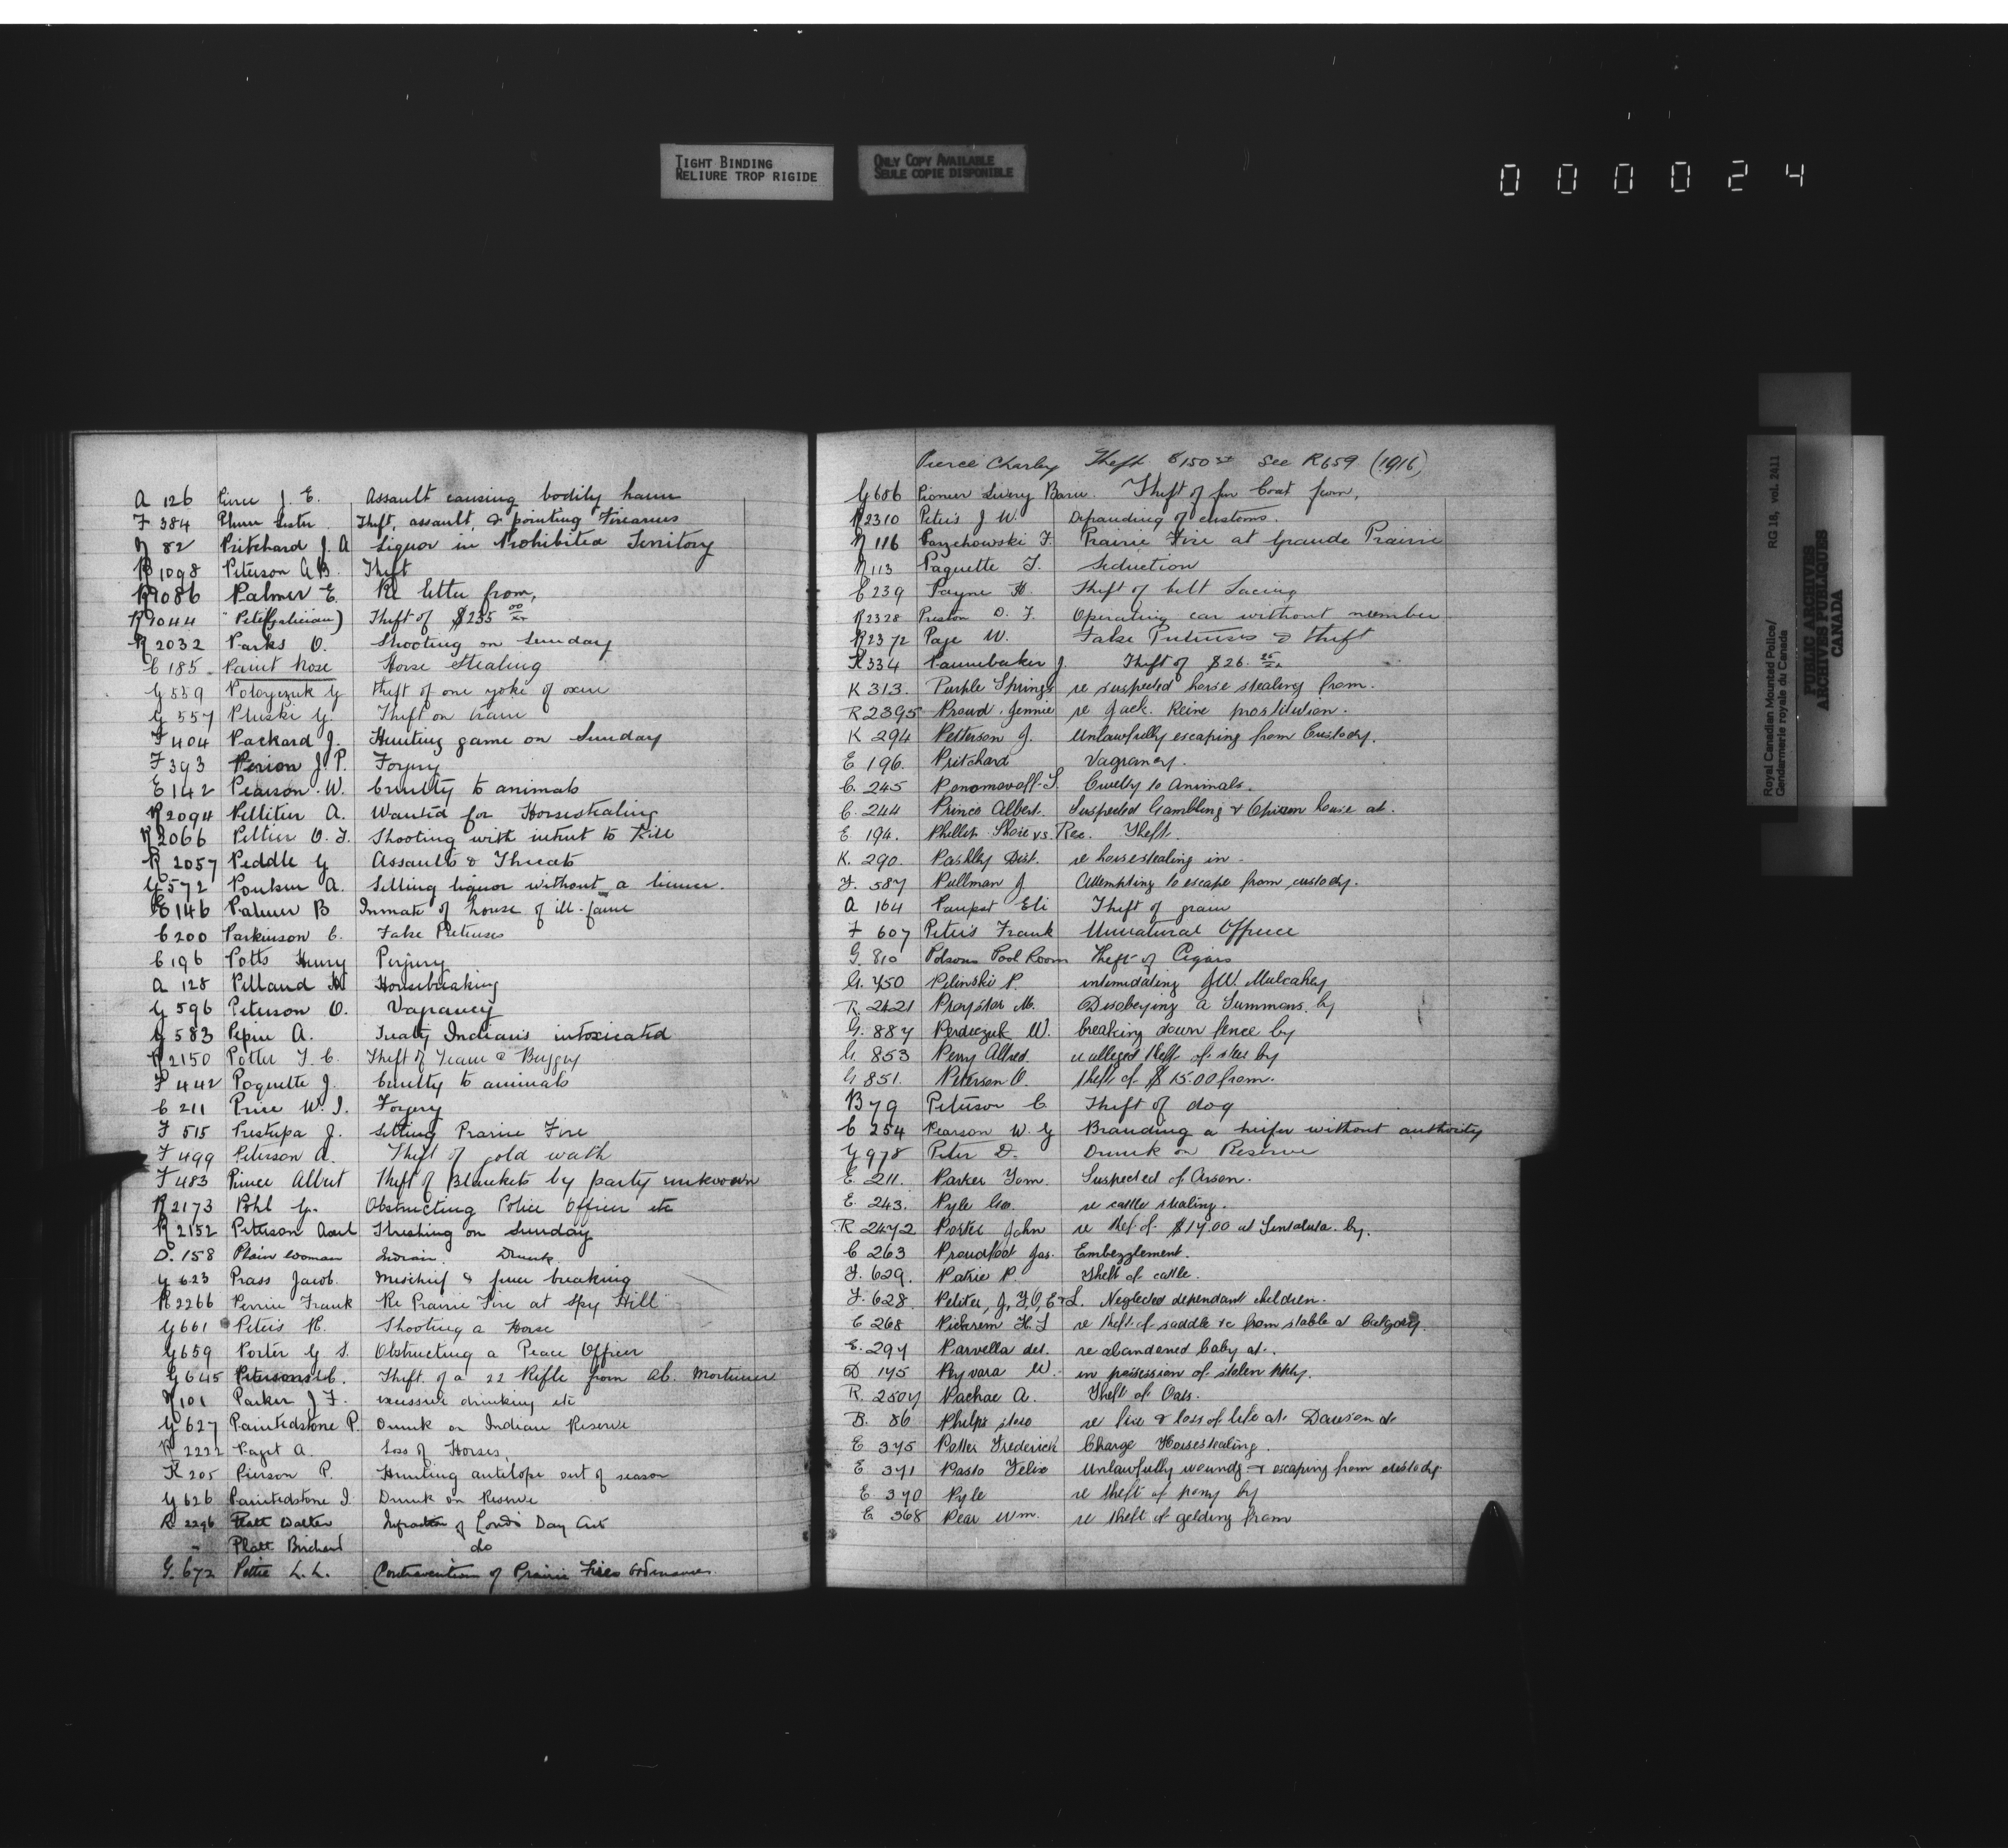 TIGHT BINDING
RELIURE TROP RIGIDE
ONLY COPY AVAILABLE
SEULE COPIE DISPONIBLE
000024
A 126 Pierce J. E. Assault causing bodily harm
F 384 Theft, assault, & pointing Firearms
N 82 Pritchard J. A Liquor in Prohibited Territory
R 1098 Peterson A B. Theft
Palmer E. Re letter from,
Theft of $235 00/xx
R 2032 Parks O. Shooting on Sunday
C 185 Paint Nose Horse Stealing
G 559 theft of one yoke of oxen
G 557 Pluski G. Theft on train
F 404 Packard J. Hunting game on Sunday
F 393 Perion J. P. Forgery
E 142 Pearson W. Cruelty to animals
R 2094 Pellitier A. Wanted for Horsestealing
R 2066 Peltier O. J. Shooting with intent to Kill
R 2057 Peddle G Assault & Threats
G 572 A. Selling liquor without a license.
E 146 Palmer B Inmate of house of ill-fame
C 200 Parkinson C. False Pretenses
C 196 Potts Henry Perjury
A 128 Pilland Housebreaking
G 596 Peterson O. Vagrancy
G 583 Pepin A. Treaty Indians intoxicated
R 2150 Potter T. C. Theft of Team & Buggy
F 442 Poquette J. Cruelty to animals
C 211 Price W. J. Forgery
F 515 Prestupa J. Setting Prairie Fire
F 499 Peterson A. Theft of gold wath
F 483 Prince Albert Theft of Blankets by party unknown
R 2173 Pohl G. Obstructing Police Officer etc
R 2152 Peterson Axel Threshing on Sunday
D. 158 Plain woman Indian. Drunk
G 623 Prass Jacob. Mischief & fence breaking
R 2266 Perrin Frank Re Prairie Fire at Spy Hill
G 661 Peters R. Shooting a Horse
G 659 Porter G S. Obstructing a Peace Officer
G 645 Petersons C. Theft of a 22 Rifle from Ab. Mortimer
N 101 Parker J F. excessive drinking etc
G 627 Paintedstone P. Drunk on Indian Reserve
R 2222 Paget A. Loss of Horses
K 205 Pierson P. Hunting antelope out of season
G 626 Paintedstone J. Drunk on Reserve
R 2296 Platt Walter Infraction of Lords Day Act
" Platt Birchard do
G. 672 Pettie L. L. Contravention of Prairie Fires Ordinances.
Pierce Charley Theft $150 See R659 (1916)
G 686 Pioneer Livery Barn. Theft of fur Coat from,
R 2310 Peters J W. Defrauding of customs.
N 116 Parzchowski F. Prairie Fire at Grande Prairie
N 113 Paquette T. Seduction
C 239 Payne H. Theft of belt Lacing
R 2328 Preston D. F. Operating car without number
R 2372 Page W. False Pretenses & theft
K 334 Pannebaker J. Theft of $26. 25/xx
K 313. Purple Springs re suspected horse stealing from.
R 2395 Proud. Jennie re Jack. Reine prostitution.
K 294 Petterson J. Unlawfully escaping from Custody.
E 196. Pritchard Vagrancy.
C. 245 Ponomovoff S. Cruelty to Animals.
C. 244 Prince Albert. Suspected Gambling & Opium house at.
E 194. Phillip Shoie vs. Rex. Theft.
K. 290. Pashley Dist. re horsestealing in.
F. 587 Pullman J Attempting to escape from custody.
A 164 Paupst Eli Theft of grain
F 607 Peters Frank Unnatural Offence
G. 810 Polsons Pool Room Theft of Cigars
G. 750 Pilinski P. intimidating J.W. Mulcahey
R. 2421 Praystar M. Disobeying a Summons by
G. 887 Perdeczuk W. breaking down fence by
G. 853 Perry Alfred. re alleged theft of steer by
G 851. Peterson O. theft of $15.00 from.
B 79 Peterson C Theft of dog
C 254 Pearson W. G Branding a heifer without authority
G 978 Peter D. Drunk on Reserve
E. 211. Parker Tom. Suspected of Arson.
E. 243. Pyle Geo. re cattle stealing.
R. 2472 Porter John re theft of $17.00 at Sintaluta. by.
C 263 Proudfoot Jas. Embezzlement.
F. 629. Patrie P. Theft of cattle.
F. 628. Peltier, J, F, O, E & L. Neglected dependant children.
C 268 Pickerem H. S re theft of saddle &c from stable at Calgary.
E. 297 Parvella det. re abandoned baby at.
D 175 Pryvara W. in possession of stolen ppty.
R. 2507 Pachac A. Theft of Oats.
B. 86 Phelps re fire & loss of life at Dawson at
E 375 Potter Frederick Charge Horsestealing.
E 371 Pasto Felix Unlawfully woundg & escaping from custody
E 370 Pyle re theft of pony by
E 368 Pear Wm. re theft of gelding from
Royal Canadian Mounted Police/ RG 18, vol. 2411
Gendarmerie royale du Canada
PUBLIC ARCHIVES
ARCHIVES PUBLIQUES
CANADA